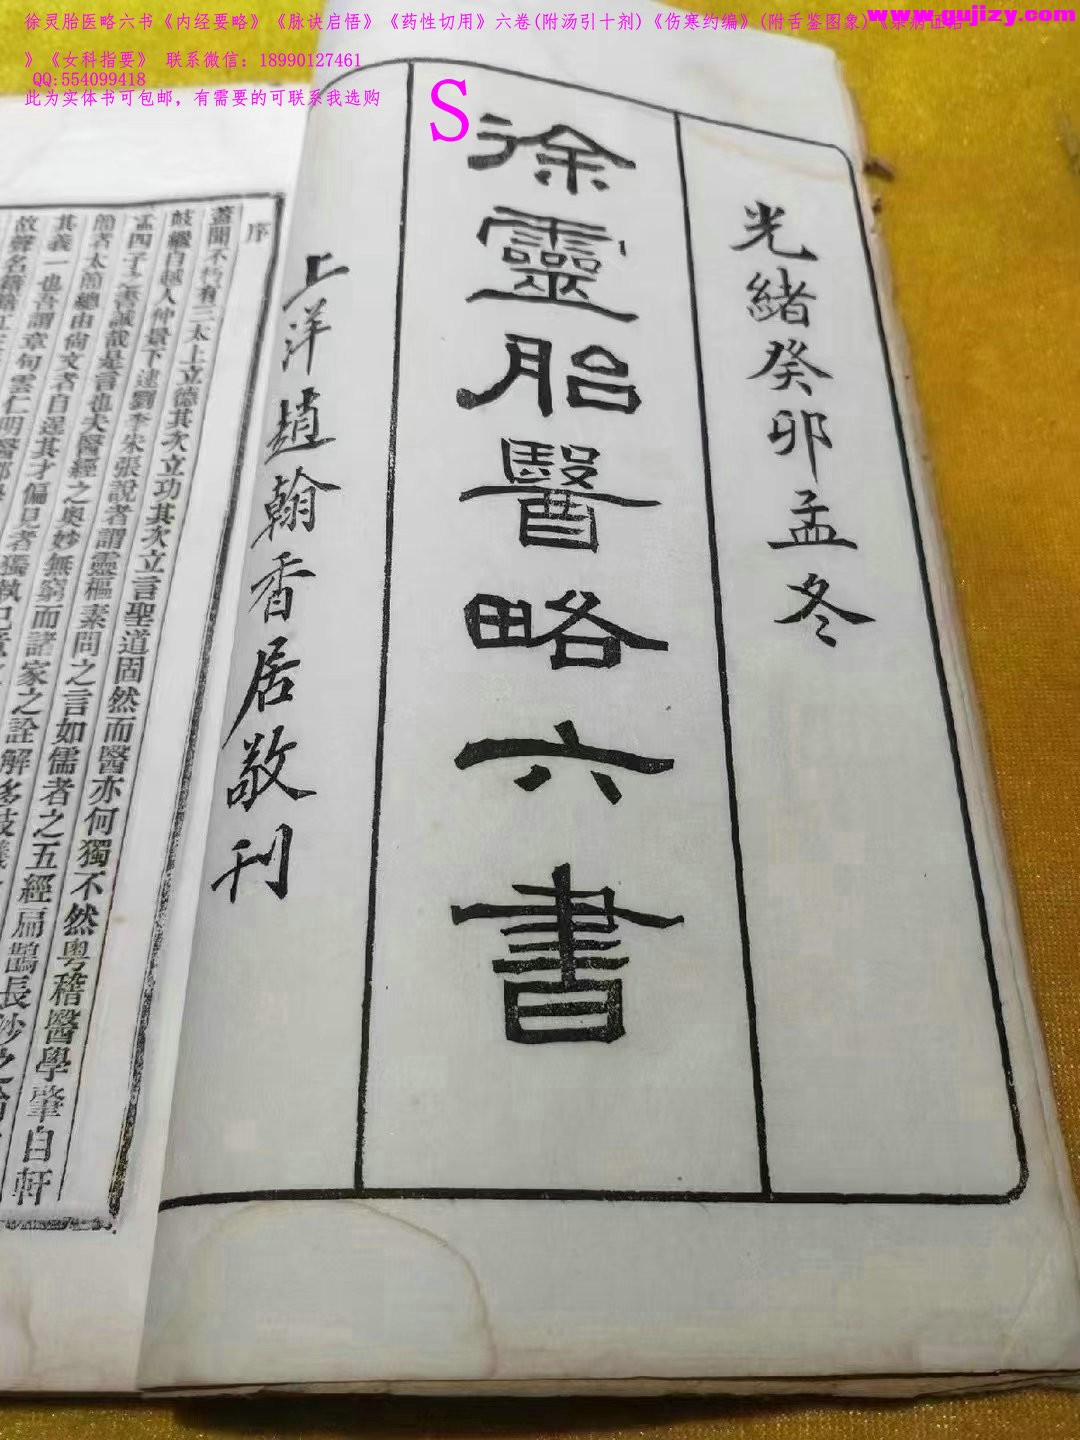 徐灵胎医略六书《内经要略》《脉诀启悟》《药性切用》六卷(附汤引十剂)《伤寒约编》(附舌鉴图象)
www.gujizy.com
》《女科指要》 联系微信: 18990127461
QQ:554099418
此为实体书可包邮，有需要的可联系我选购
S
光緒癸卯孟冬
徐靈胎醫略六書
上洋趙翰香居敬刊
序
蓋聞不朽有三太上立德其次立功其次立言聖道固然而醫亦何獨不然粤稽醫學肇自軒
岐繼自越人仲景下逮劉李朱張說者謂靈樞素問之言如儒者之五經扁鵲長沙之
孟四子之書誠哉是言也夫醫經之奥妙無窮而諸家之詮解多歧
節者太節總由尚文者自逞其才偏見者獨執己
其義一也吾謂章句雲仁明醫
故聲名籍